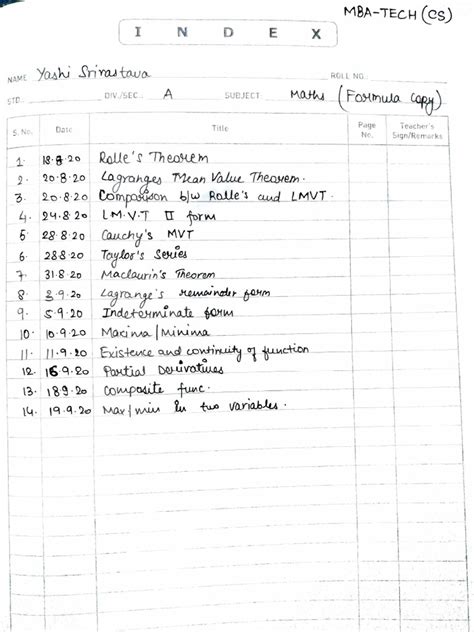 MBA-TECH (CS)
I N D E X
NAME Yashi Srivastava ROLL NO.
STD. DIV./SEC. A SUBJECT Maths (Formula copy)
S. No. Date Title Page No. Teacher's Sign/Remarks
1. 18.8.20 Rolle's Theorem
2. 20.8.20 Lagranges Mean Value Theorem.
3. 20.8.20 Comparison b/w Rolle's and LMVT.
4. 24.8.20 L.M.V.T II form
5 28.8.20 Cauchy's MVT
6. 28.8.20 Taylor's Series
7. 31.8.20 Maclaurin's Theorem
8. 3.9.20 Lagrange's remainder form
9. 5.9.20 Indeterminate form
10. 10.9.20 Maxima/Minima
11. 11.9.20 Existence and continuity of function
12. 16.9.20 Partial Derivatives
13. 18.9.20 Composite func.
14. 19.9.20 Max/min in two variables.